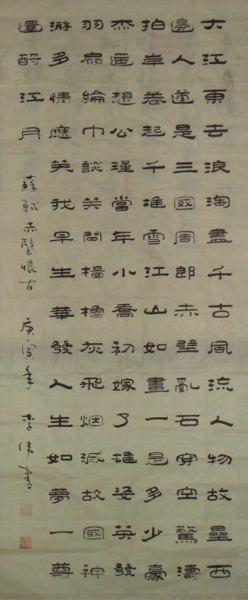 大江東去浪淘盡千古風流人物故壘西
邊人道是三國周郎赤壁亂石穿空驚濤
拍岸卷起千堆雪江山如畫一是多少豪
杰遥想公瑾當年小喬初嫁了雄姿英發
羽扇綸巾談笑間檣櫓灰飛烟滅故國神
游多情應笑我早生華發人生如夢一尊
還酹江月 蘇軾赤壁懷古 庚寅年 李書